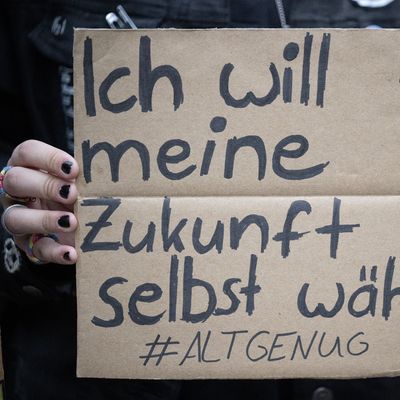 Ich will
meine
Zukunft
selbst wäh
#ALTGENUG